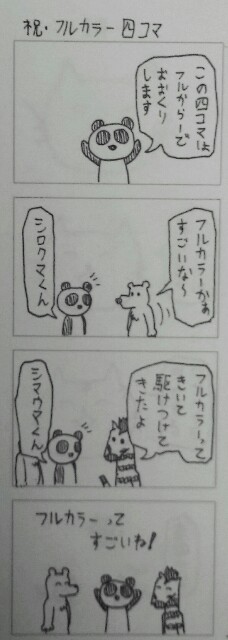 祝・フルカラー四コマ
この四コマは
フルからーで
おおくり
します
フルカラーかぁ
すごいな〜
シロクマくん
フルカラーって
きいて
駆けつけて
きたよ
シマウマくん
フルカラーって
すごいね!